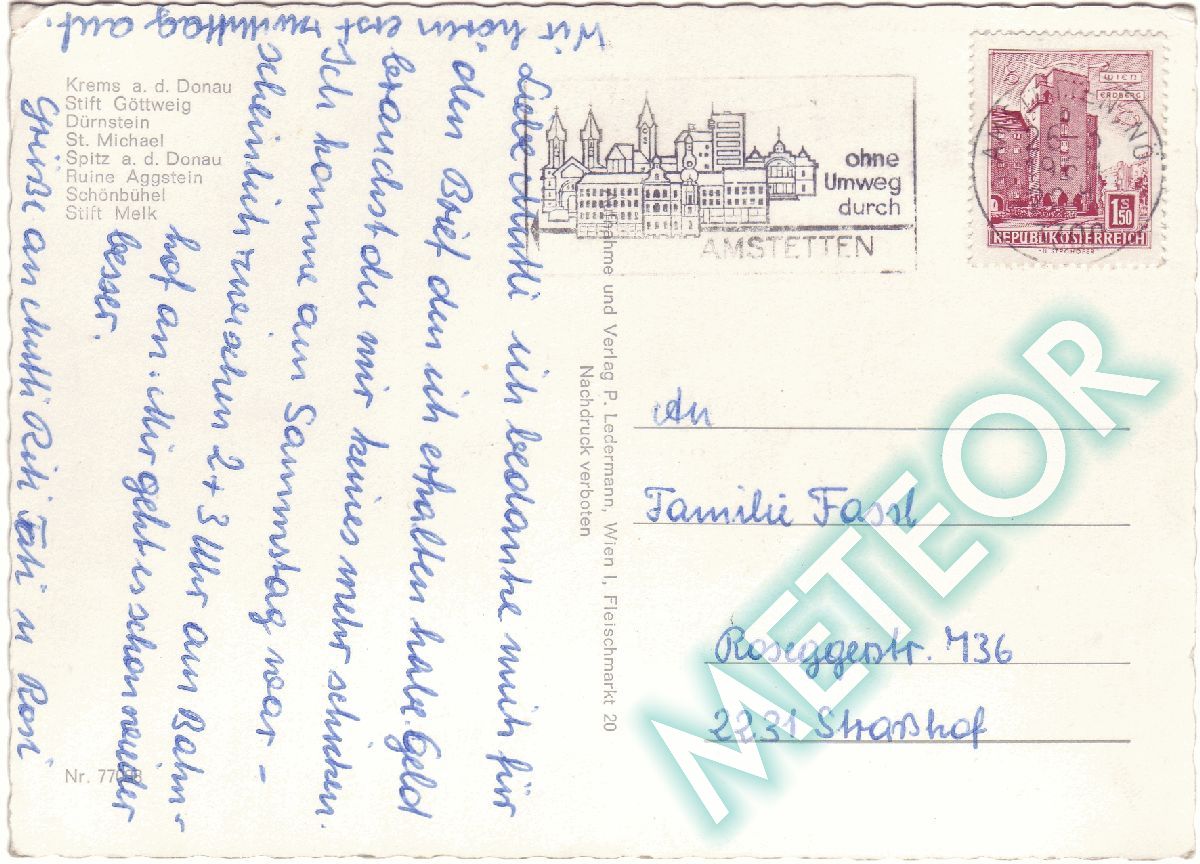 Krems a. d. Donau
Stift Göttweig
Dürnstein
St. Michael
Spitz a. d. Donau
Ruine Aggstein
Schönbühel
Stift Melk
Liebe Mutti ich bedanke mich für
den Brief den ich erhalten habe. Geld
brauchst du mir keines mehr schicken.
Ich komme am Sammstag war-
scheinlich zwischen 2+3 Uhr am Bahn-
hof an. Mir geht es schon wieder
besser.
Grüße an Mutti Riti Tati u Rosi
Wir hören erst zu mittag auf.
Nr. 77098
Aufnahme und Verlag P. Ledermann, Wien I, Fleischmarkt 20
Nachdruck verboten
ohne
Umweg
durch
AMSTETTEN
WIEN
ERDBERG
1 S 50
REPUBLIK ÖSTERREICH
An
Familie Fassl
Roseggerstr. 736
2231 Straßhof
METEOR